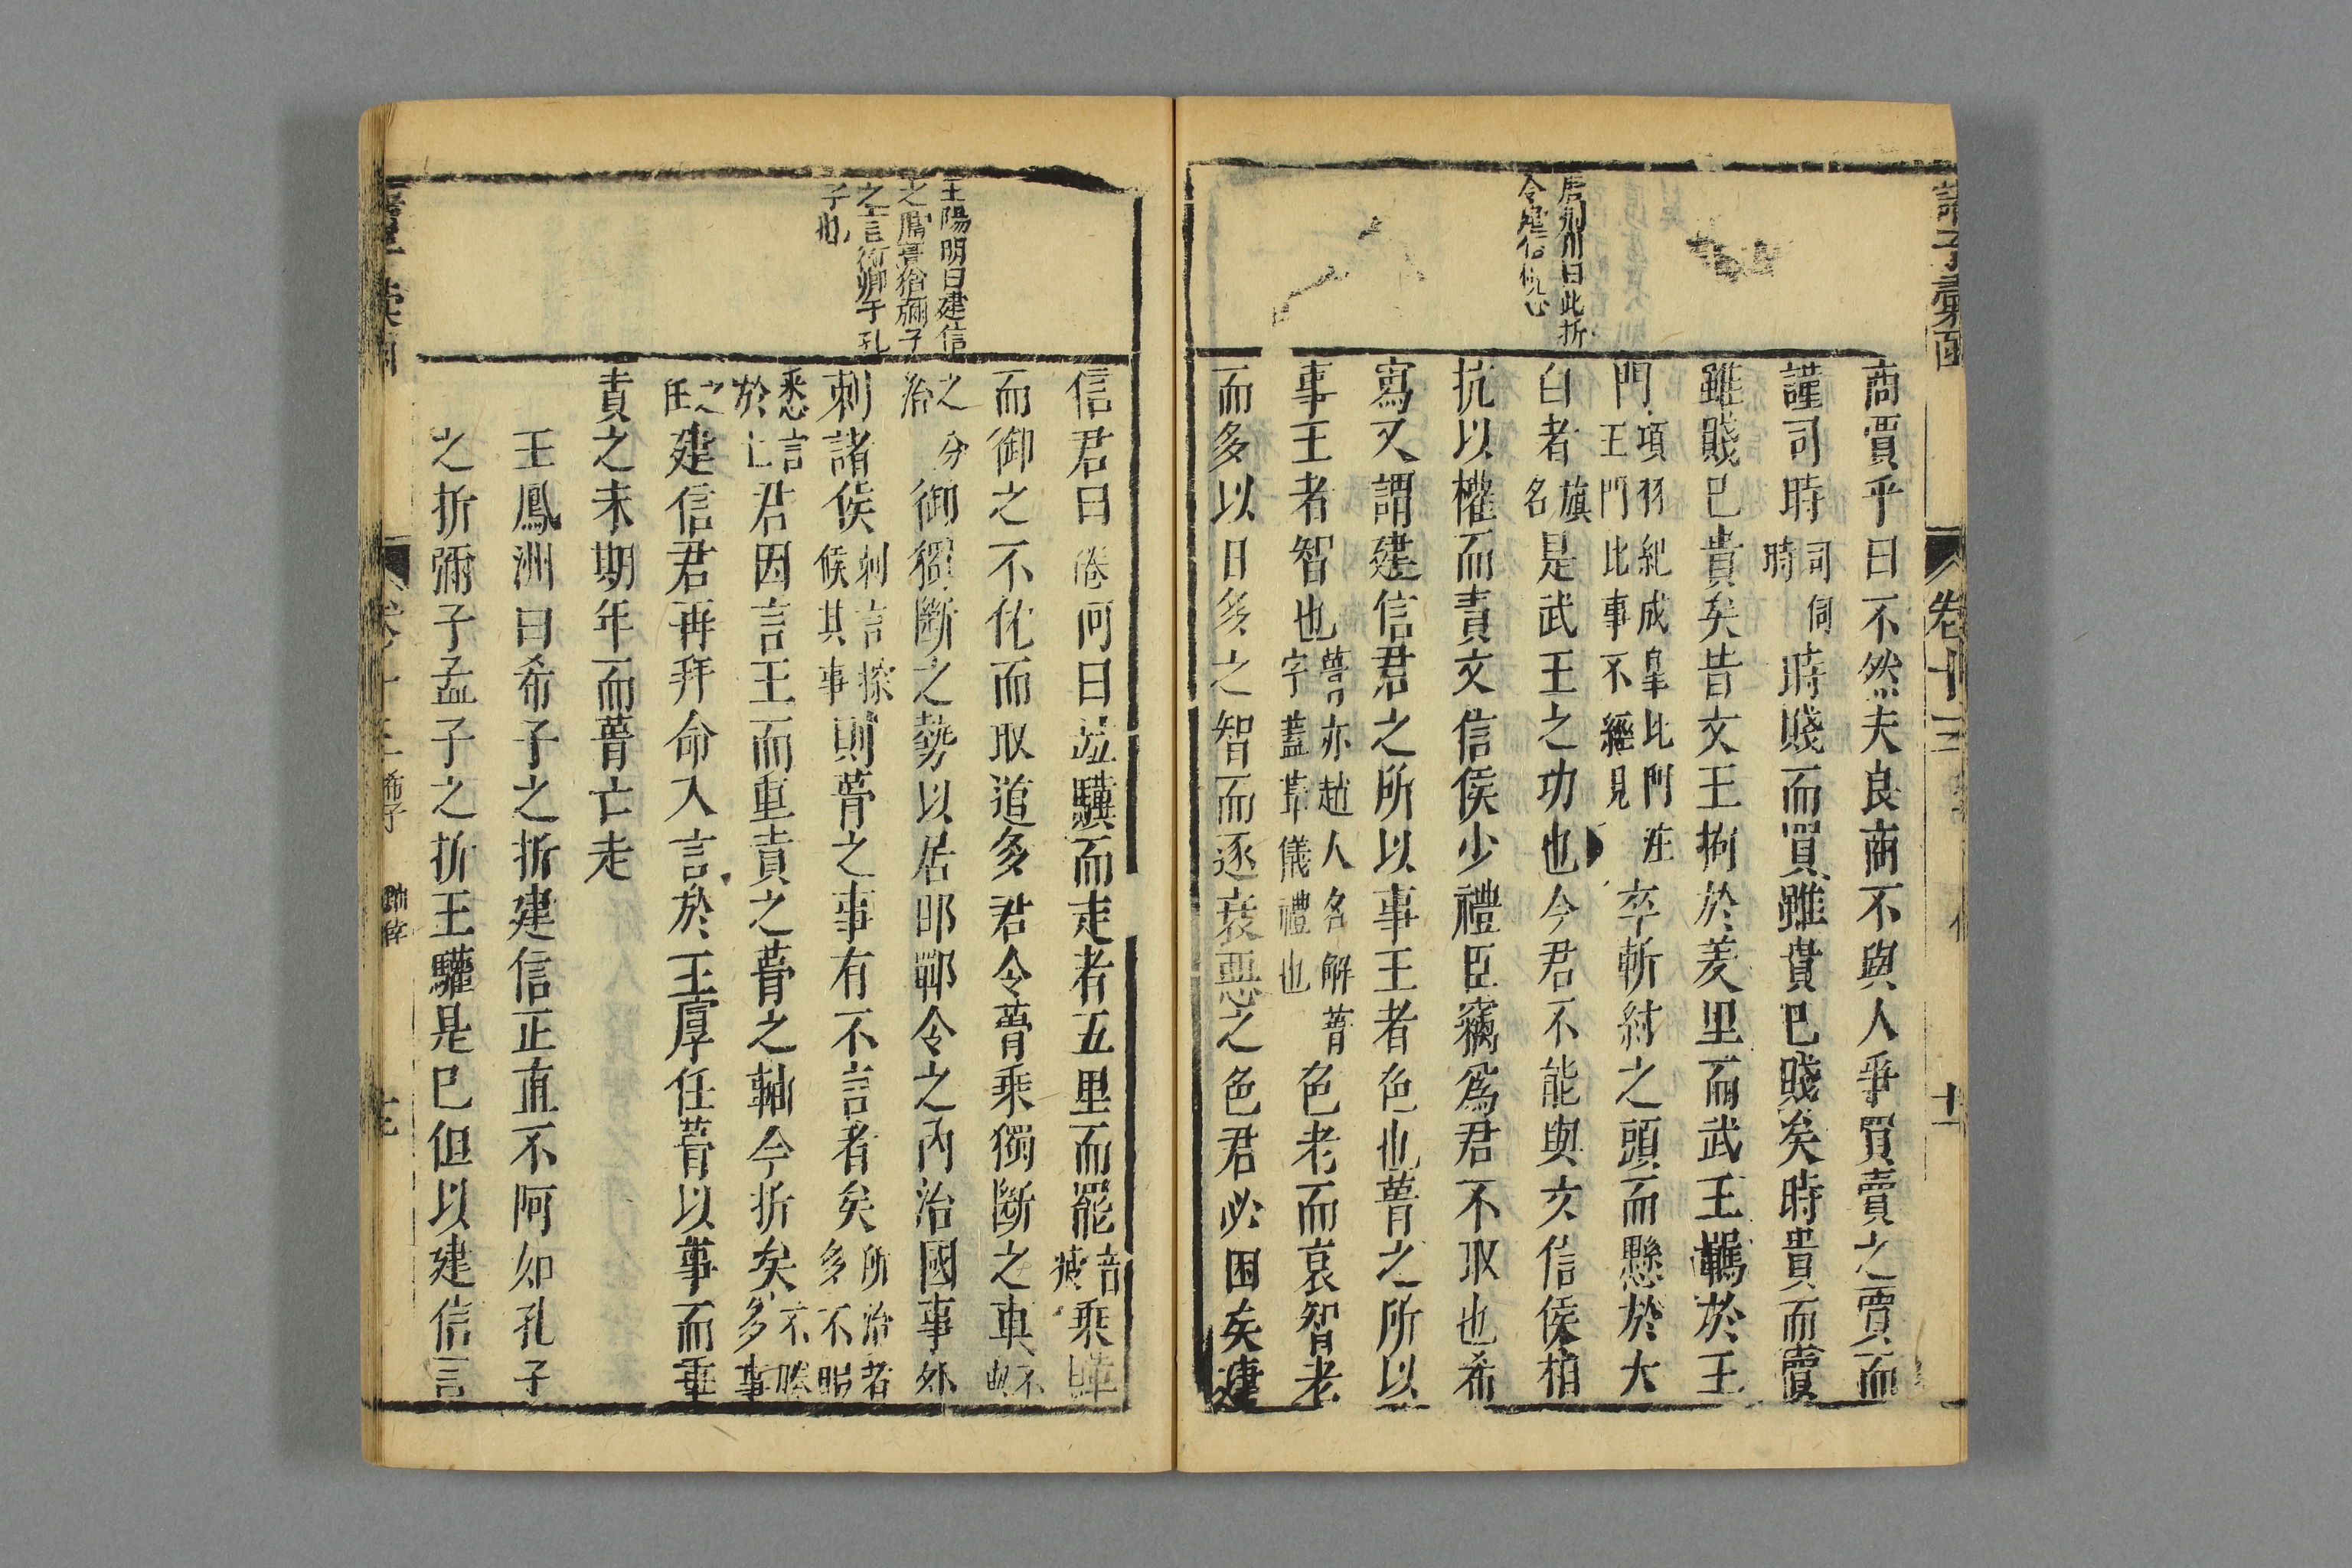 諸子彙函
卷十三
十二
唐荆川曰此折
令建信侃心
商賈乎曰不然夫良商不與人爭買賣之賈而
謹司時司伺時時賤而買雖貴已賤矣時貴而賣
雖賤已貴矣昔文王拘於羑里而武王羈於王
門項羽紀成臯比門注王門比事不經見卒斬紂之頭而懸於大
白者旗名是武王之功也今君不能與文信侯相
抗以權而責文信侯少禮臣竊爲君不取也希
寫又謂建信君之所以事王者色也葺之所以
事王者智也葺亦趙人名解葺字蓋葺儀禮也色老而哀智老
而多以日多之智而逐衰惡之色君必困矣建
王陽明曰建信
之膺猶彌子
之言衛卿于孔
子也
信君曰奈何曰並驥而走者五里而罷音疲乘驥
而御之不倦而取道多君令葺乘獨斷之車不
之分治御獨斷之勢以居邯鄲令之內治國事外
刺諸侯刺言探候其事則葺之事有不言者矣所治者多不
悉言於亡君因言王而重責之葺之軸今折矣不勝多事
之任建信君再拜命入言於王厚任葺以事而重
責之未期年而葺亡走
王鳳洲曰希子之折建信正直不阿如孔子
之折彌子孟子之折王驩是已但以建信言
卷十三
希子